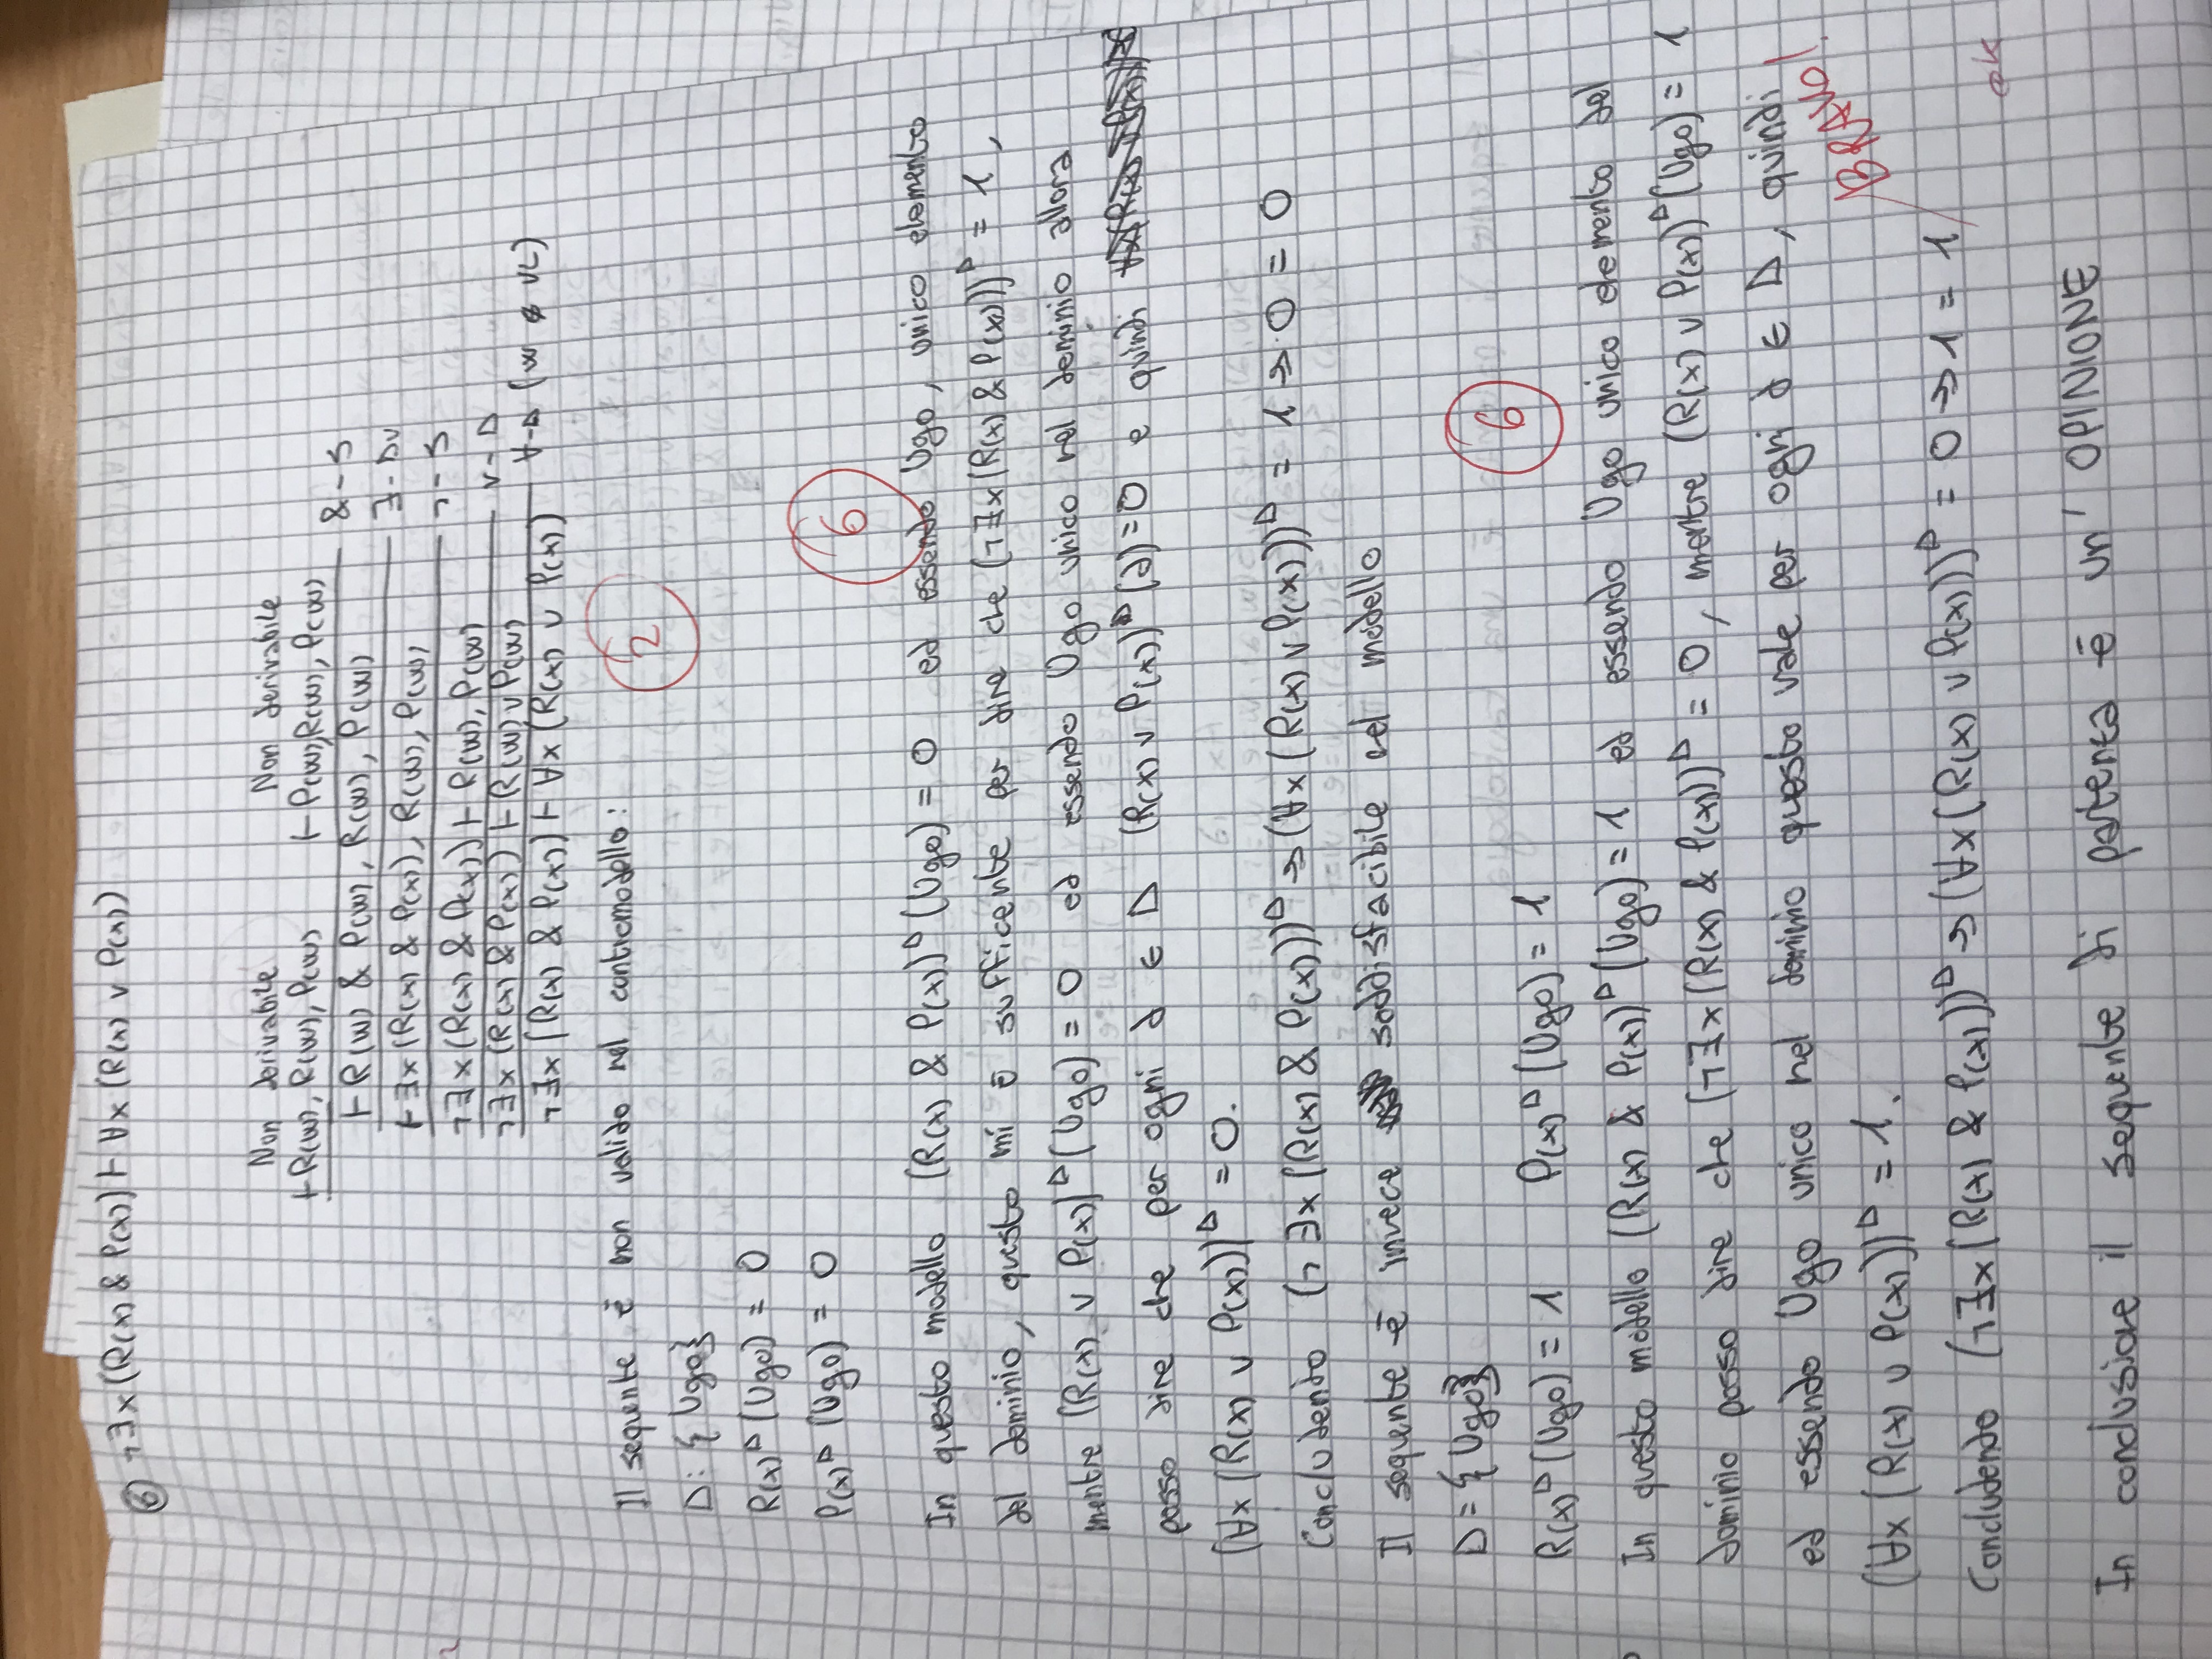 ⑥ ¬∃x(R(x) & P(x)) ⊢ ∀x (R(x) ∨ P(x))
Non derivabile Non derivabile
⊢ R(w), R(w), P(w) ⊢ P(w), R(w), P(w)
&-S
⊢ R(w) & P(w), R(w), P(w)
∃-Dv
⊢ ∃x (R(x) & P(x)), R(w), P(w)
¬-S
¬∃x (R(x) & P(x)) ⊢ R(w), P(w)
∨-D
¬∃x (R(x) & P(x)) ⊢ R(w) ∨ P(w)
∀-D (w ∉ VL)
¬∃x (R(x) & P(x)) ⊢ ∀x (R(x) ∨ P(x))
Il sequente è non valido nel contromodello:
2
D: {Ugo}
R(x)ᴰ (Ugo) = 0
P(x)ᴰ (Ugo) = 0
6
In questo modello (R(x) & P(x))ᴰ (Ugo) = 0 ed essendo Ugo, unico elemento
del dominio, questo mi è sufficente per dire che (¬∃x (R(x) & P(x)))ᴰ = 1,
mentre (R(x) ∨ P(x))ᴰ (Ugo) = 0 ed essendo Ugo unico nel dominio allora
posso dire che per ogni d ∈ D (R(x) ∨ P(x))ᴰ (d) = 0 e quindi
(∀x (R(x) ∨ P(x)))ᴰ = 0.
Concludendo (¬∃x (R(x) & P(x)))ᴰ → (∀x (R(x) ∨ P(x)))ᴰ = 1 → 0 = 0
Il sequente è invece soddisfacibile nel modello
D = {Ugo}
6
R(x)ᴰ (Ugo) = 1 P(x)ᴰ (Ugo) = 1
In questo modello (R(x) & P(x))ᴰ (Ugo) = 1 ed essendo Ugo unico elemento del
dominio posso dire che (¬∃x (R(x) & P(x)))ᴰ = 0, mentre (R(x) ∨ P(x))ᴰ (Ugo) = 1
ed essendo Ugo unico nel dominio questo vale per ogni d ∈ D, quindi
(∀x (R(x) ∨ P(x)))ᴰ = 1.
BRAVO!
Concludendo (¬∃x (R(x) & P(x)))ᴰ → (∀x (R(x) ∨ P(x)))ᴰ = 0 → 1 = 1
ok
In conclusione il sequente di partenza è un' OPINIONE